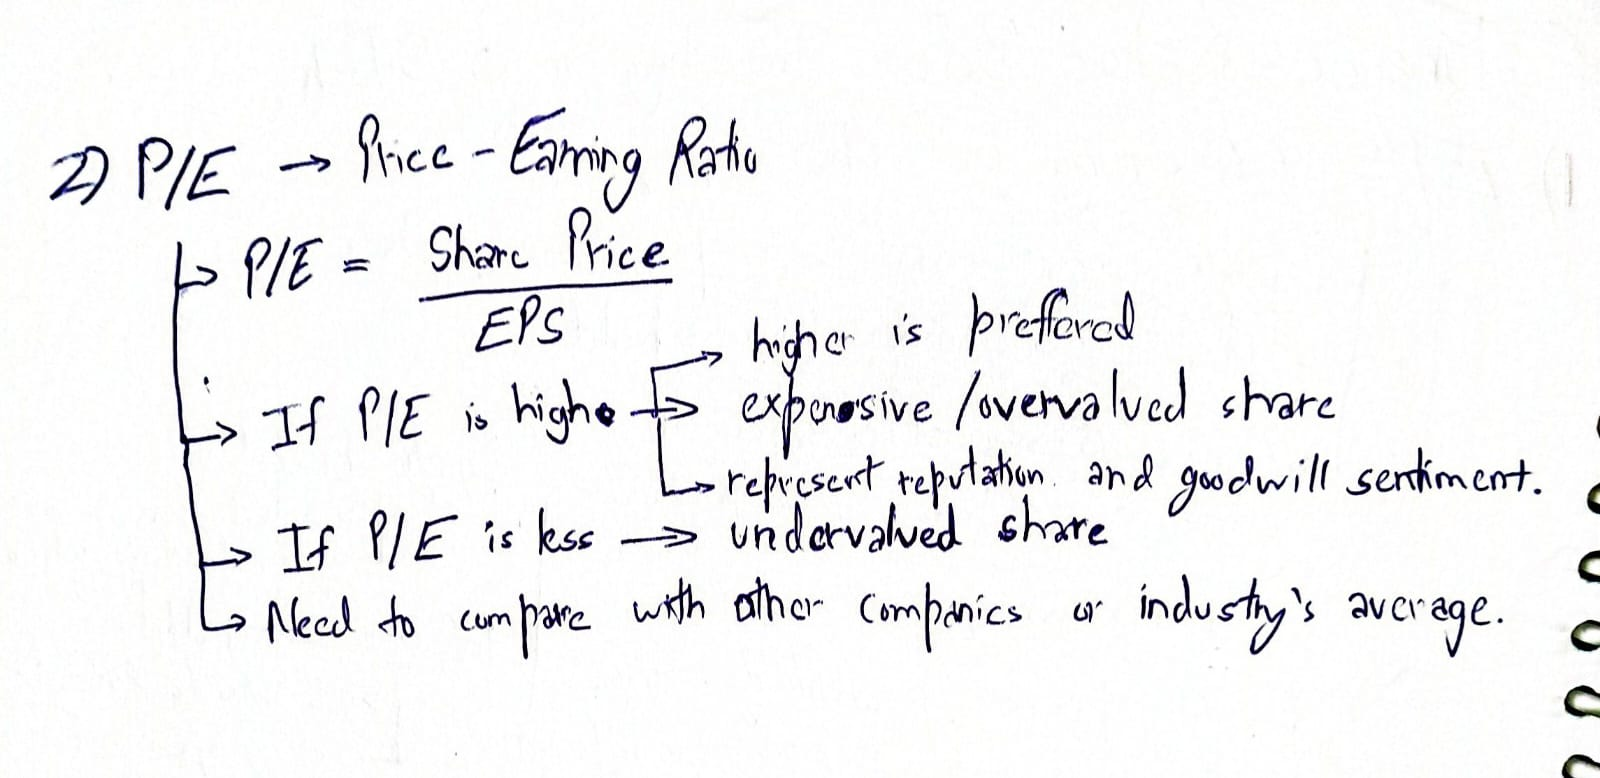 2) P/E → Price - Earning Ratio
↳ P/E = Share Price
EPS
→ If P/E is high → higher is preffered
→ expensive / overvalued share
↳ represent reputation and goodwill sentiment.
→ If P/E is less → undervalued share
↳ Need to compare with other companies or industry's average.